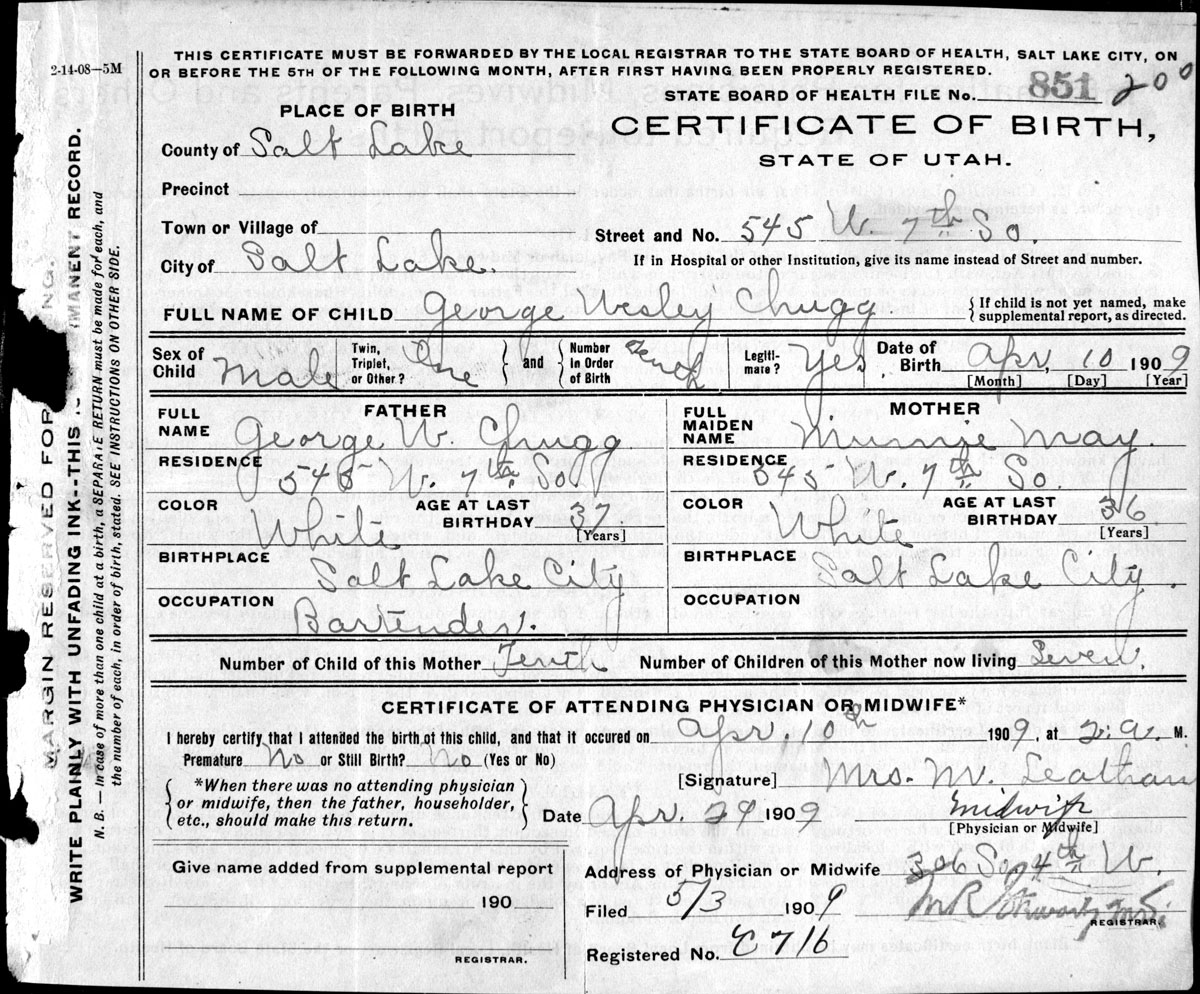 THIS CERTIFICATE MUST BE FORWARDED BY THE LOCAL REGISTRAR TO THE STATE BOARD OF HEALTH, SALT LAKE CITY, ON
OR BEFORE THE 5TH OF THE FOLLOWING MONTH, AFTER FIRST HAVING BEEN PROPERLY REGISTERED.
2-14-08—5M
STATE BOARD OF HEALTH FILE No. 851 200
PLACE OF BIRTH
CERTIFICATE OF BIRTH,
STATE OF UTAH.
County of Salt Lake
Precinct
Town or Village of
Street and No. 545 W. 7th So.
City of Salt Lake.
If in Hospital or other Institution, give its name instead of Street and number.
FULL NAME OF CHILD George Wesley Chugg
{If child is not yet named, make
supplemental report, as directed.
Sex of Child Male
Twin, Triplet, or Other? One
and
Number in Order of Birth
Legitimate? Yes
Date of Birth Apr, 10 1909
[Month] [Day] [Year]
FATHER
FULL NAME George W. Chugg
RESIDENCE 545 W. 7th So
COLOR White
AGE AT LAST BIRTHDAY 37
[Years]
BIRTHPLACE Salt Lake City
OCCUPATION Bartender.
MOTHER
FULL MAIDEN NAME Minnie May.
RESIDENCE 545 W. 7th So
COLOR White
AGE AT LAST BIRTHDAY 36
[Years]
BIRTHPLACE Salt Lake City.
OCCUPATION
Number of Child of this Mother Tenth Number of Children of this Mother now living Seven.
CERTIFICATE OF ATTENDING PHYSICIAN OR MIDWIFE*
I hereby certify that I attended the birth of this child, and that it occured on Apr. 10th 1909, at 2.a. M.
Premature No or Still Birth? No (Yes or No)
*When there was no attending physician
or midwife, then the father, householder,
etc., should make this return.
[Signature] Mrs. M.
Date Apr. 29 1909
midwife
[Physician or Midwife]
Give name added from supplemental report
190
REGISTRAR.
Address of Physician or Midwife 306 So 4th W.
Filed 5/3 1909
REGISTRAR.
Registered No. E716
MARGIN RESERVED FOR
WRITE PLAINLY WITH UNFADING INK--THIS IS MANENT RECORD.
N. B. — In case of more than one child at a birth, a SEPARATE RETURN must be made for each, and
the number of each, in order of birth, stated. SEE INSTRUCTIONS ON OTHER SIDE.